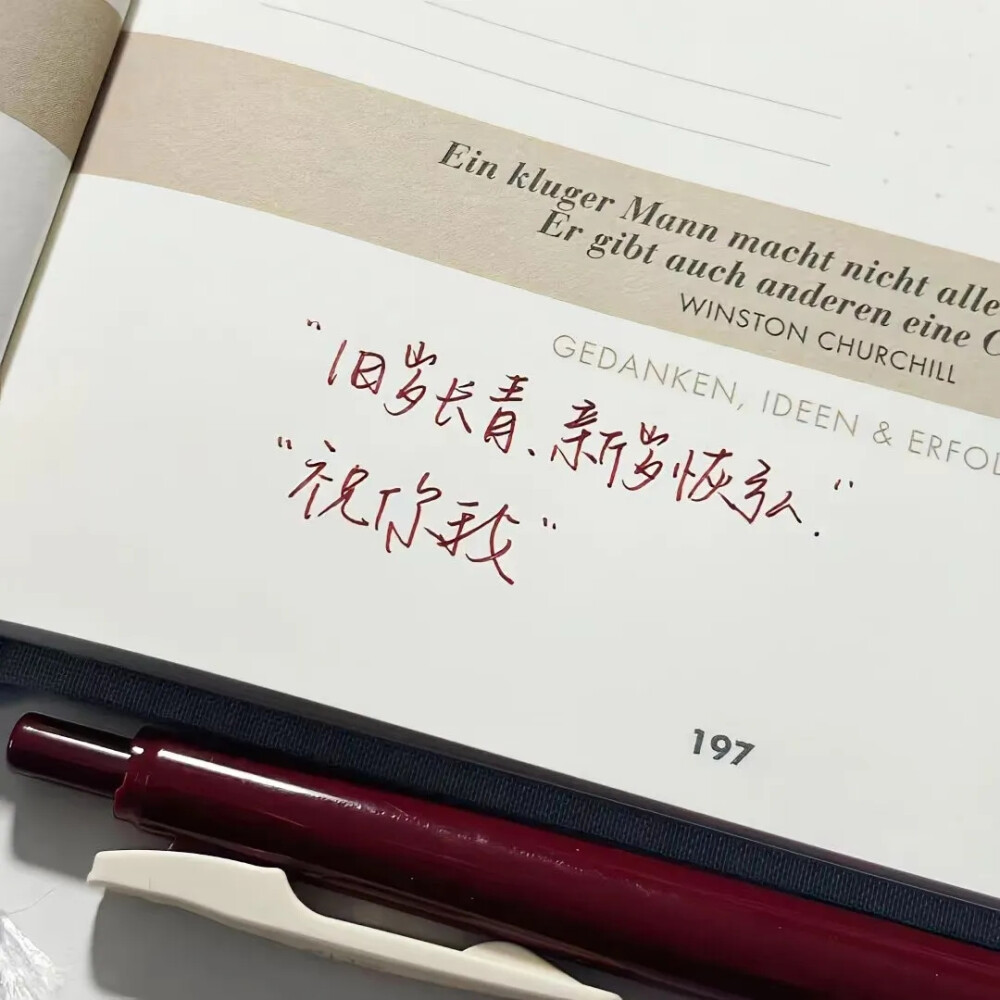 Ein kluger Mann macht nicht alle
Er gibt auch anderen eine C
WINSTON CHURCHILL
GEDANKEN, IDEEN & ERFOL
"旧岁长青、新岁恢弘."
"祝你我"
197